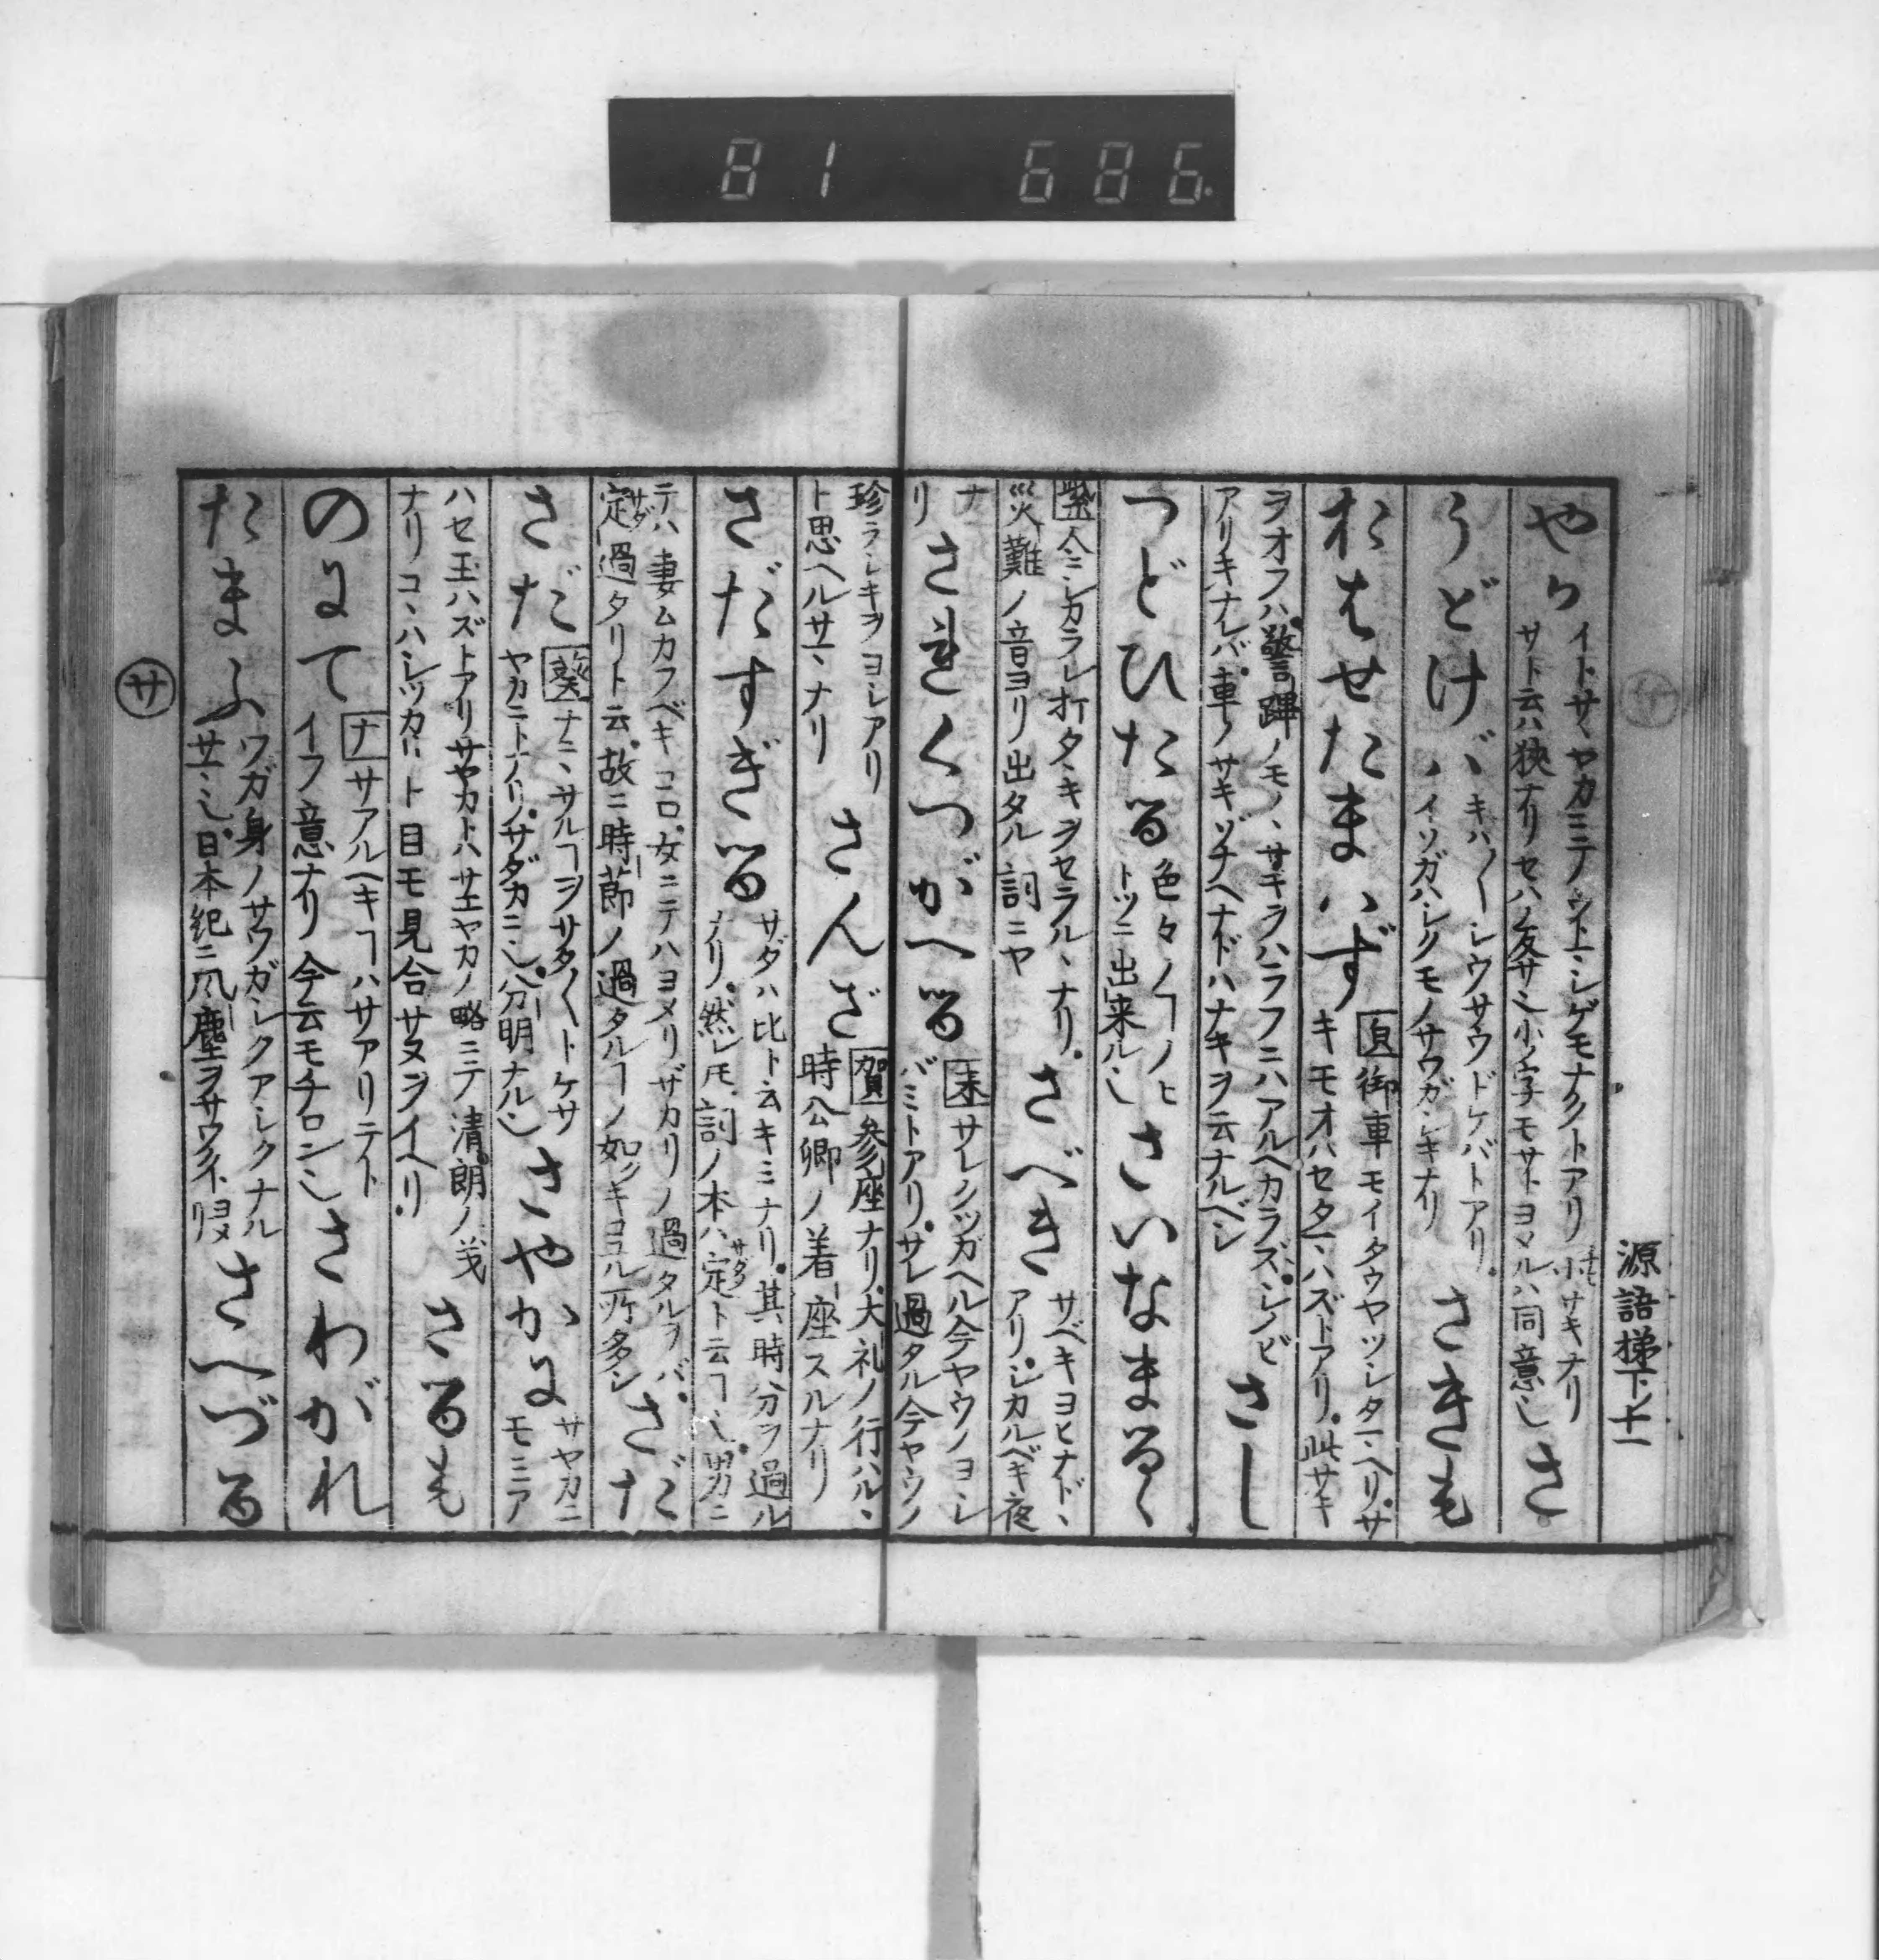 81 686
源語梯下ノ十一
やか イトサヽヤカニテ
サト云ハ狭ナリ
同意也 さ
うどけバ キハ〳〵シウサウドケバトアリ
イソガハシクモノサワガシキナリ さきも
おはせたまハず 御車モイタウヤツシタマヘリサ
キモオハセタマハズトアリ此サキ
ヲオフハ警蹕ノモノヽサキヲハラフニハアルヘカラズシノビ
アリキナレバ車ノサキゾナヘナドハナキヲ云ナルベシ さし
つどひたる 色々ノヿノヒ
トツニ出来ル也 さいなまるゝ
紫 今シカラレ打タヽキヲセラルヽナリ
災難ノ音ヨリ出タル詞ニヤ さべき サベキヨヒナドヽ
アリシカルベキ夜
ナ
リ さればくつがへる 末 サレクツガヘル今ヤウノヨシ
バミトアリサレ過タル今ヤウノ
珍ラシキヲヨシアリ
ト思ヘルサマナリ さんざ 賀 参座ナリ大礼ノ行ハルヽ
時公卿ノ着座スルナリ
さだすぎる サダハ比ト云キミナリ其時分ヲ過ル
ナリ然レ𪜈詞ノ本ハ定ト云ヿ也男ニ
テハ妻ムカフベキコロ女ニテハヨメリザカリノ過タルヲバ
定過タリト云故ニ時節ノ過タルヿノ如キヨミル所多シ さだ
さだ 葵 ナニヽサルヿヲサタ〳〵トケサ
ヤカニトナリサダカニ也分明ナル也 さやかに サヤカニ
モミア
ハセ玉ハズトアリサヤカトハサエヤカノ略ニテ清朗ノ義
ナリコヽハシツカリト目モ見合サヌヲイヘリ さるも
のにて ナ サアルヘキヿハサアリテト
イフ意ナリ今云モチロン也 さわがれ
たまふ ワガ身ノサワガシクアシクナル
サマ也日本紀ニ風塵ヲサワイトヨメリ さへづる
サ